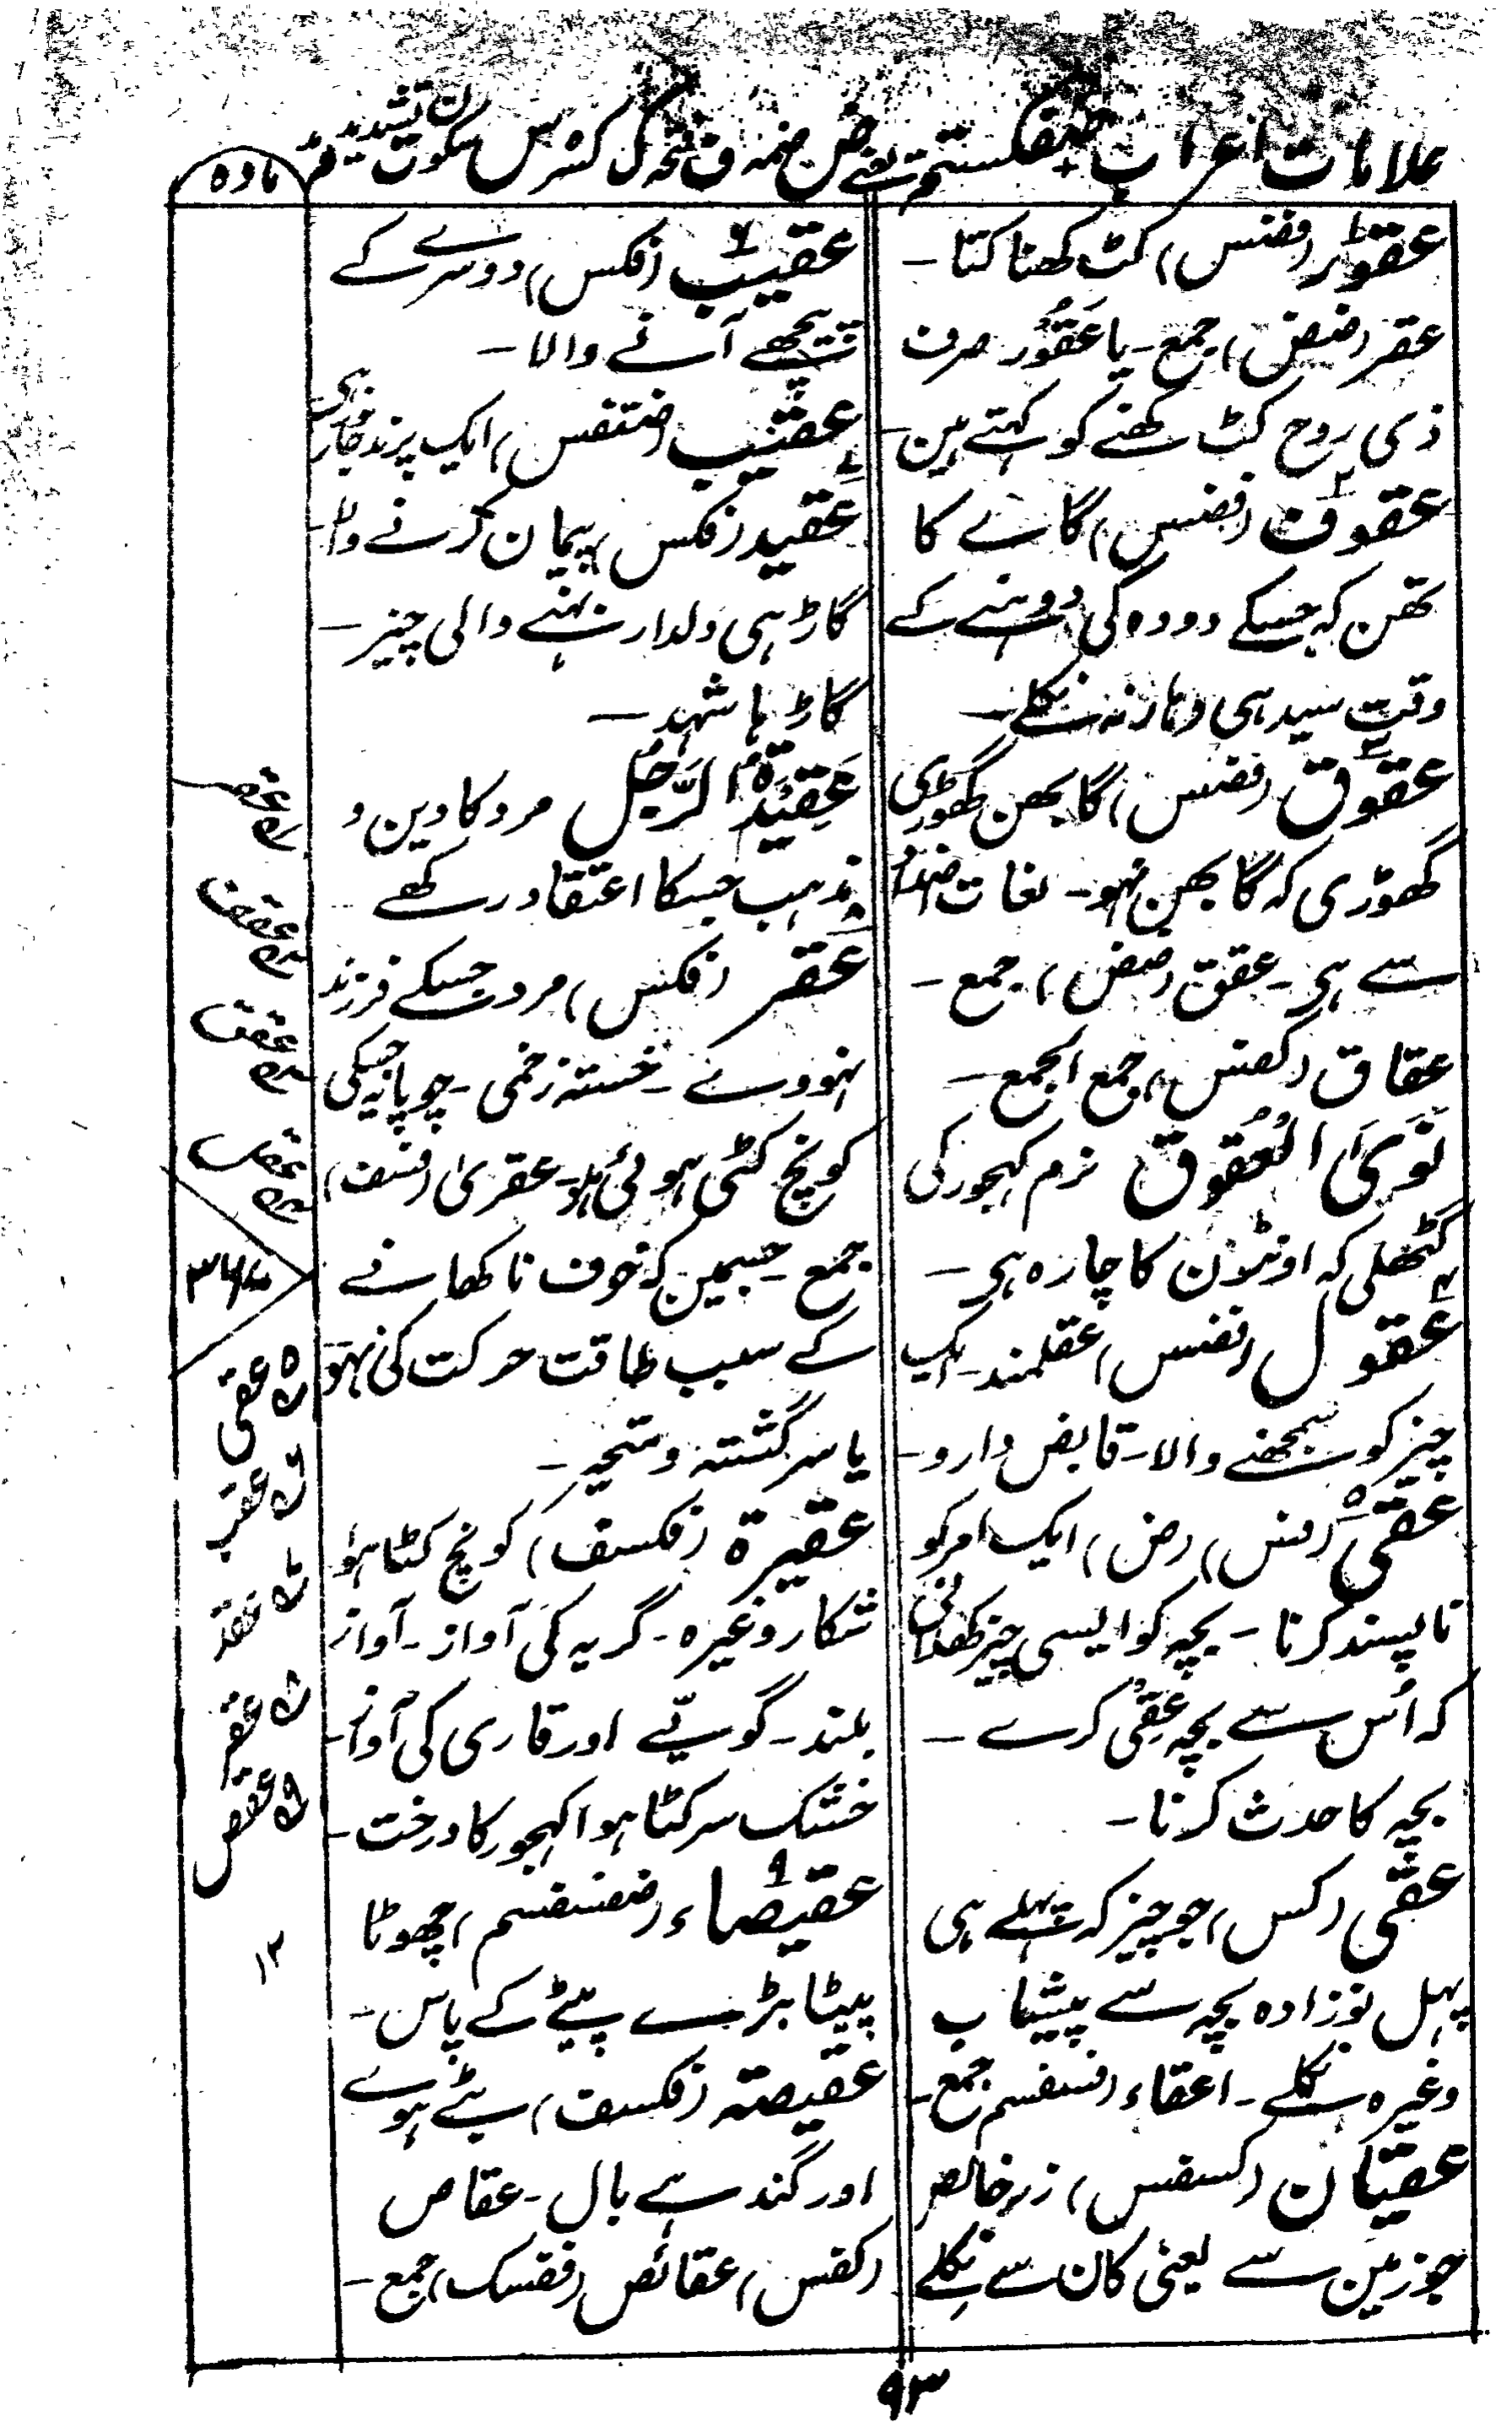 علامات اعراب ضفکستم یعنے ض ضمہ ف فتحہ ک کسرہ س سکون ت تنوین م مد
مادہ
عقور (فضس) کٹ کھنا کتا -
عقر (ضض) جمع - یا عَقُوُر صرف
ذی روح کٹ کھنے کو کہتے ہین -
عقوف (فضس) گاے کا
تھن کہ جسکے دودہ کی دوہنے کے
وقت سیدہی دہار نہ نکلے -
عقوق (فضس) گابھن گھوڑی
گھوڑی کہ گابھن نہو - لغات اضداد
سے ہی - عقق (ضض) جمع -
عقاق (کفس) جمع الجمع -
نَوَیَ الْعُقُوق نرم کہجور کی
گٹھلی کہ اونٹون کا چارہ ہی -
عقول (فضس) عقلمند - ایک
چیز کو سمجھنے والا - قابض دارو -
عقی (فس) (ض) ایک امر کو
ناپسند کرنا - بچہ کو ایسی چیز کھلانی
کہ اُس سے بچہ عِقِیْ کرے -
بچہ کا حدث کرنا -
عقی (کس) جو چیز کہ پہلے ہی
پہل نوزادہ بچہ سے پیشاب
وغیرہ نکلے - اعقاء (فسفسم) جمع -
عقیان (کسفس) زر خالص
جو زمین سے یعنی کان سے نکلے
عقیب (فکس) دوسرے کے
پیچھے آنے والا -
عقیب (ضتفس) ایک پرند
عقید (فکس) پیمان کرنے والا -
گاڑہی دلدار نہنے والی چیز -
گاڑہا شہد -
عَقِیْدَةُ الرَّجُل مرد کا دین و
مذہب جسکا اعتقاد رکھے
عقر (فکس) مرد جسکے فرزند
نہووے - خستہ زخمی - چوپایہ جسکی
کونچ کٹی ہوئی ہو - عقریٰ (فسف)
جمع - جسمین کہ خوف ناکھانے
کے سبب طاقت حرکت کی نہو
یا سرگشتہ و متحیر -
عقیرة (فکسف) کونچ کٹا ہوا
شکار وغیرہ - گریہ کی آواز - آواز
بلند - گویّے اور قاری کی آواز -
خشک سر کٹا ہوا کہجور کا درخت -
عقیصاء (ضفسفسم) چھوٹا
پیٹا بڑے پیٹے کے پاس -
عقیصتہ (فکسف) بٹے ہوے
اور گندہے بال - عقاص
(کفس) عقائص (ففسک) جمع -
عقر
عقف
عقق
عقل
عقی
عقب
عقد
عقر
عقص
۱۲
۹۳